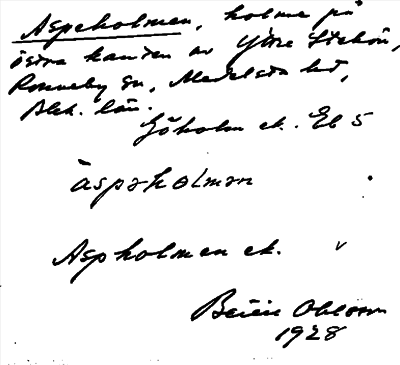 Aspeholmen, holme på
östra kanten av Yttre Stekön,
Ronneby sn, Medelsta hd,
Blek. län.
Sjökolm ek. Eb 5
àspəholmən
Aspholmen ek. v
Ohlsson
1928